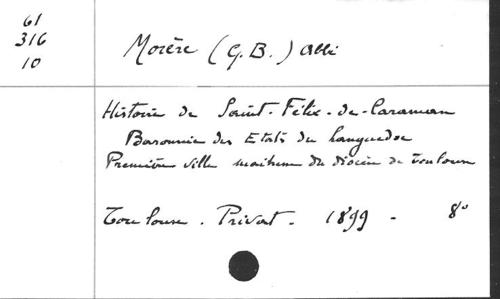 61
316
10
Morère (G.B.) abbé
Histoire de Saint-Félix-de-Caraman
Baronnie des Etats du Languedoc
Première ville maîtresse du diocèse de Toulouse
Toulouse. Privat. 1899 - 8°